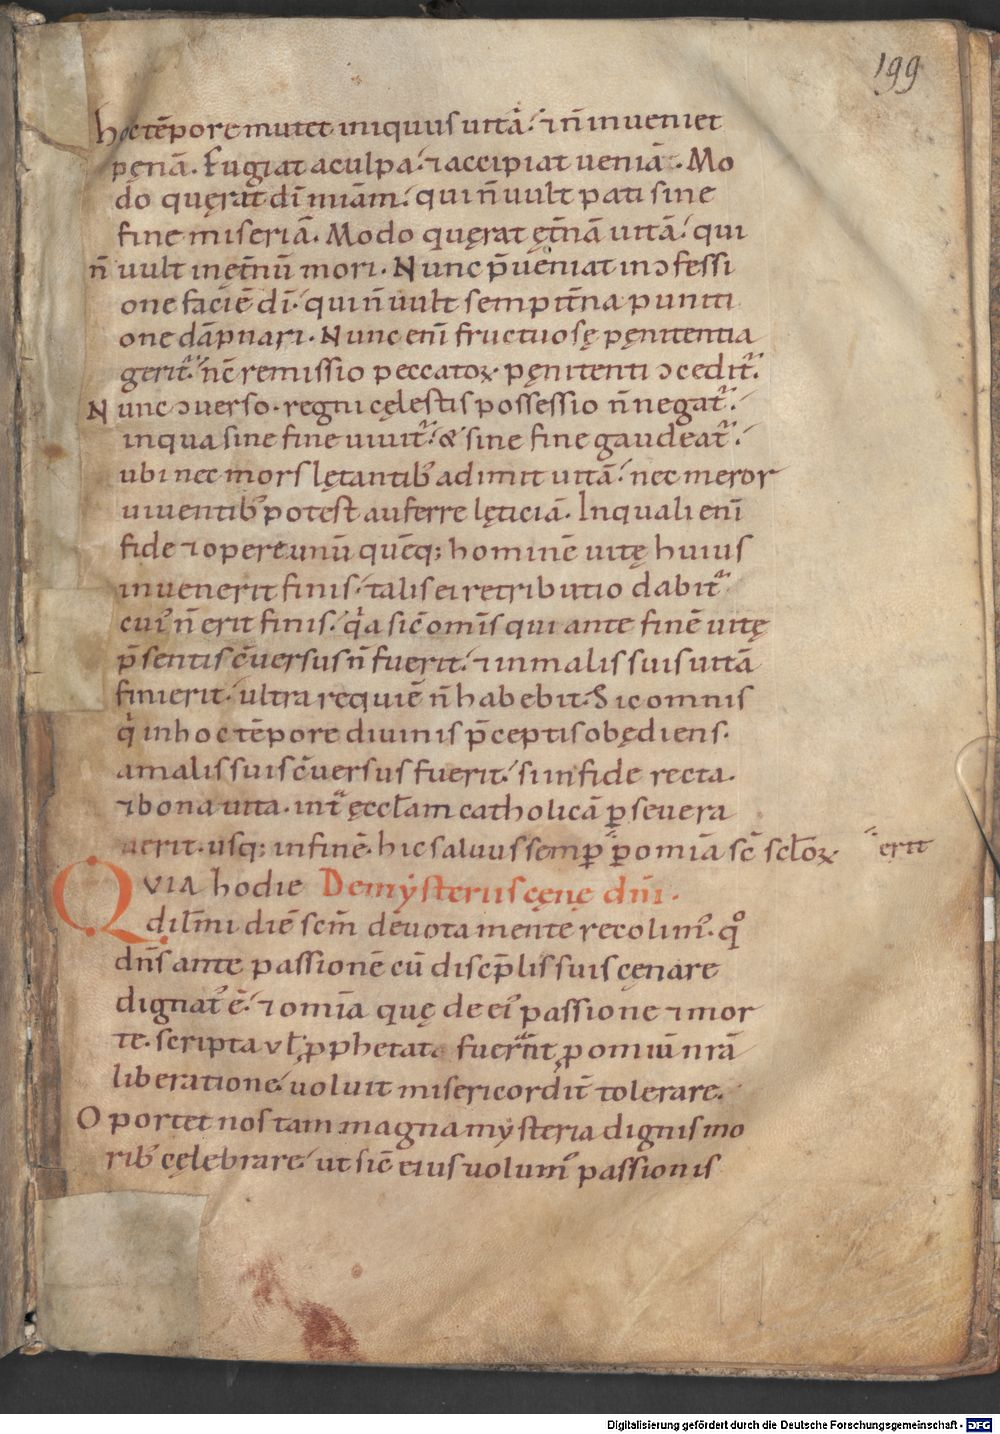 199
hoc tēpore mutet iniquus uitā᷎. ⁊ n̄ inueniet
pęnā. Fugiat a culpa. ⁊ accipiat ueniā. Mo
do quęrat dī miām. qui n̄ uult pati sine
fine miseriā. Modo quęrat ęt̄nā uitā. qui
n̄ uult inęt̄nū mori. Nunc p̄ueniat in ɔfessi
one faciē dī. qui n̄ uult sempit̄na puniti
one dāpnari. Nunc enī fructuosę pęnitentia
gerit᷑. n̄c remissio peccatoꝝ pęnitenti ɔcedit᷑.
Nunc ɔuerso. regni cęlestis possessio n̄ negat᷑.
in qua sine fine uiuit᷑. & sine fine gaudeat᷑.
ubi nec mors lętantib; adimit uitā. nec meror
uiuentib; potest auferre lęticiā. In quali enī
fide ⁊ opere unū quēq; hominē uitę huius
inuenerit finis. talis ei retributio dabit᷑
cui᷒ n̄ erit finis. qͥa sic̄ om̄s qui ante finē uitę
p̄sentis ɔ̄uersus n̄ fuerit. ⁊ in malis suis uitā
finierit. ultra requiē n̄ habebit. Sic omnis
qͥ in hoc tēpore diuinis p̄ceptis obędiens.
a malis suis ɔ̄uersus fuerit. si in fide recta.
⁊ bona uita. int᷑ ęccl̄am catholicā ꝑseuera
uerit. usq; in finē. hic saluus semꝑ ꝑ omīa sc̄ scl̄oꝝ erit
QVIA hodie De mẏsteriis cęnę dn̄i.
dil̄mi diē sc̄m deuota mente recolim᷒. qͦ
dn̄s ante passionē cū discip̄lis suis cęnare
dignat᷒ ē. ⁊ omīa quę de ei᷒ passione ⁊ mor
te. scripta vl̄ ꝓphetata fuer̄t. ꝓ omiū nrā
liberatione. uoluit misericordit̄ tolerare.
Oportet nos tam magna mẏsteria dignis mo
rib; cęlebrare. ut sic̄ eius uolum᷒ passionis
Digitalisierung gefördert durch die Deutsche Forschungsgemeinschaft - DFG